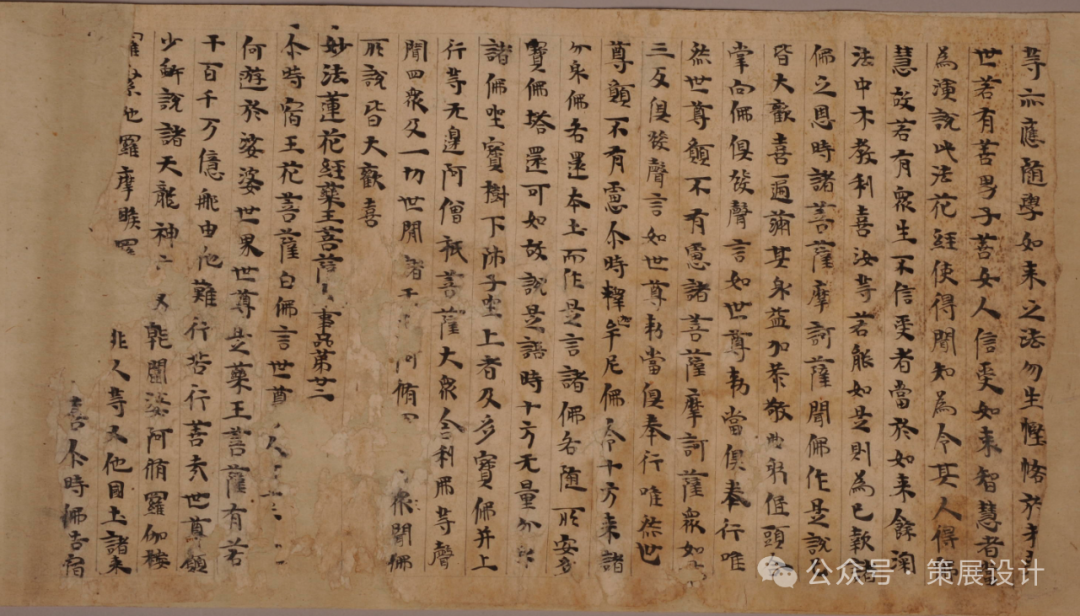 等亦應隨學如來之法勿生慳悋於未
世若有善男子善女人信受如來智慧者
為演說此法花經使得聞知為令其人得
慧故若有眾生不信受者當於如來餘深
法中示教利喜汝等若能如是則為已報諸
佛之恩時諸菩薩摩訶薩聞佛作是說已
皆大歡喜遍滿其身益加恭敬曲躬低頭合
掌向佛俱發聲言如世尊勑當俱奉行唯
然世尊願不有慮諸菩薩摩訶薩眾如是
三反俱發聲言如世尊勑當俱奉行唯然世
尊願不有慮尒時釋迦牟尼佛令十方來諸
分身佛各還本土而作是言諸佛各隨所安多
寶佛塔還可如故說是語時十方无量分身
諸佛坐寶樹下師子坐上者及多寶佛并上
行等无邊阿僧祇菩薩大眾舍利弗等聲
聞四眾及一切世間 阿脩 眾聞佛
所說皆大歡喜
妙法蓮花經藥王菩薩 事品第廿三
尒時宿王花菩薩白佛言世尊
何遊於娑婆世界世尊是藥王菩薩有若
干百千万億那由他難行苦行善哉世尊願
少解說諸天龍神 叉乾闥婆阿脩羅伽樓
羅緊那羅摩睺羅 非人等又他國土諸來
喜尒時佛告宿
公众号·策展设计